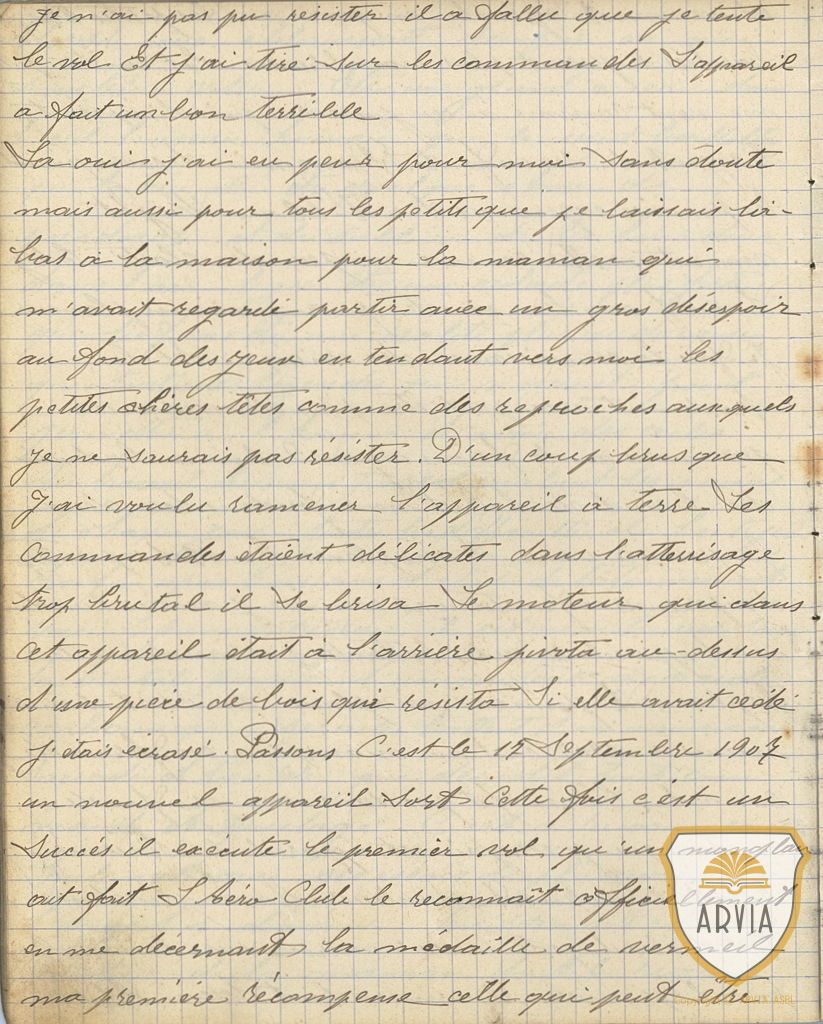 Je n'ai pas pu résister il a fallu que je tente
le vol Et j'ai tiré sur les commandes L'appareil
a fait un bon terrible
La oui j'ai eu peur pour moi sans doute
mais aussi pour tous les petits que je laissais là-
bas à la maison pour la maman qui
m'avait regardé partir avec un gros désespoir
au fond des yeux en tendant vers moi les
petites chères têtes comme des reproches auxquels
je ne saurais pas résister. D'un coup brusque
J'ai voulu ramener l'appareil à terre. Les
commandes étaient délicates dans l'atterrisage
trop brutal il se brisa Le moteur qui dans
cet appareil était à l'arrière pivota au-dessus
d'une pièce de bois qui résista Si elle avait cédé
j'étais écrasé. Passons C'est le Septembre 1907
un nouvel appareil sort Cette fois c'est un
succés il exécute le premier vol qu'un monoplan
ait fait L'Aéro Club le reconnaît officiellement
en me décernant la médaille de vermeil
ma première récompense celle qui peut être
ARVIA